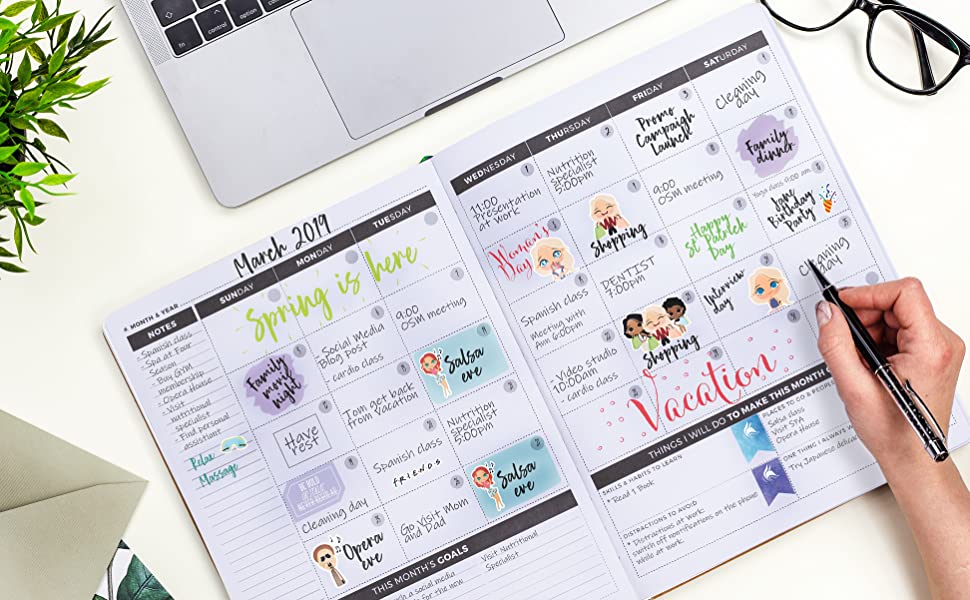 fn
control
option
March 2019
& MONTH & YEAR
NOTES
- Spanish class
- Spa at Four
Season
- Buy GYM
membership
- Opera House
- Visit
nutritional
specialist
- Find personal
assistant
Relax
Massage
SUNDAY
MONDAY
TUESDAY
Spring is here
Family
movie
night
- Social Media
Blog post
- cardio class
9:00
OSM meeting
Have
rest
Tom get back
from vacation
Salsa
eve
BE BOLD
NEVER REGULAR
Cleaning day
Spanish class
FRIENDS
Nutrition
specialist
5:00pm
Opera
eve
Go Visit Mom
and Dad
Salsa
eve
THIS MONTH'S GOALS
social media
for the new
Visit Nutritional
Specialist
WEDNESDAY
THURSDAY
FRIDAY
SATURDAY
11:00
Presentation
at work
Nutrition
specialist
5:00pm
Promo
Campaign
Launch
Cleaning
day
Woman's
Day
Shopping
9:00
OSM meeting
Family
dinner
Spanish class
Meeting with
6:00pm
DENTIST
7:00pm
Happy
St Patrick
Day
Yoga class 9:00 am
Jane
Birthday
Party
- Video Studio
10:00am
- cardio class
Shopping
Interview
day
Cleaning
day
Vacation
THINGS I WILL DO TO MAKE THIS MONTH
SKILLS & HABITS TO LEARN
* Read 1 Book
DISTRACTIONS TO AVOID
* Distractions at work:
switch off notifications on the phone
while at work
PLACES TO GO & PEOPLE
Salsa class
Visit SPA
Opera House
ONE THING I ALWAYS
Try Japanese